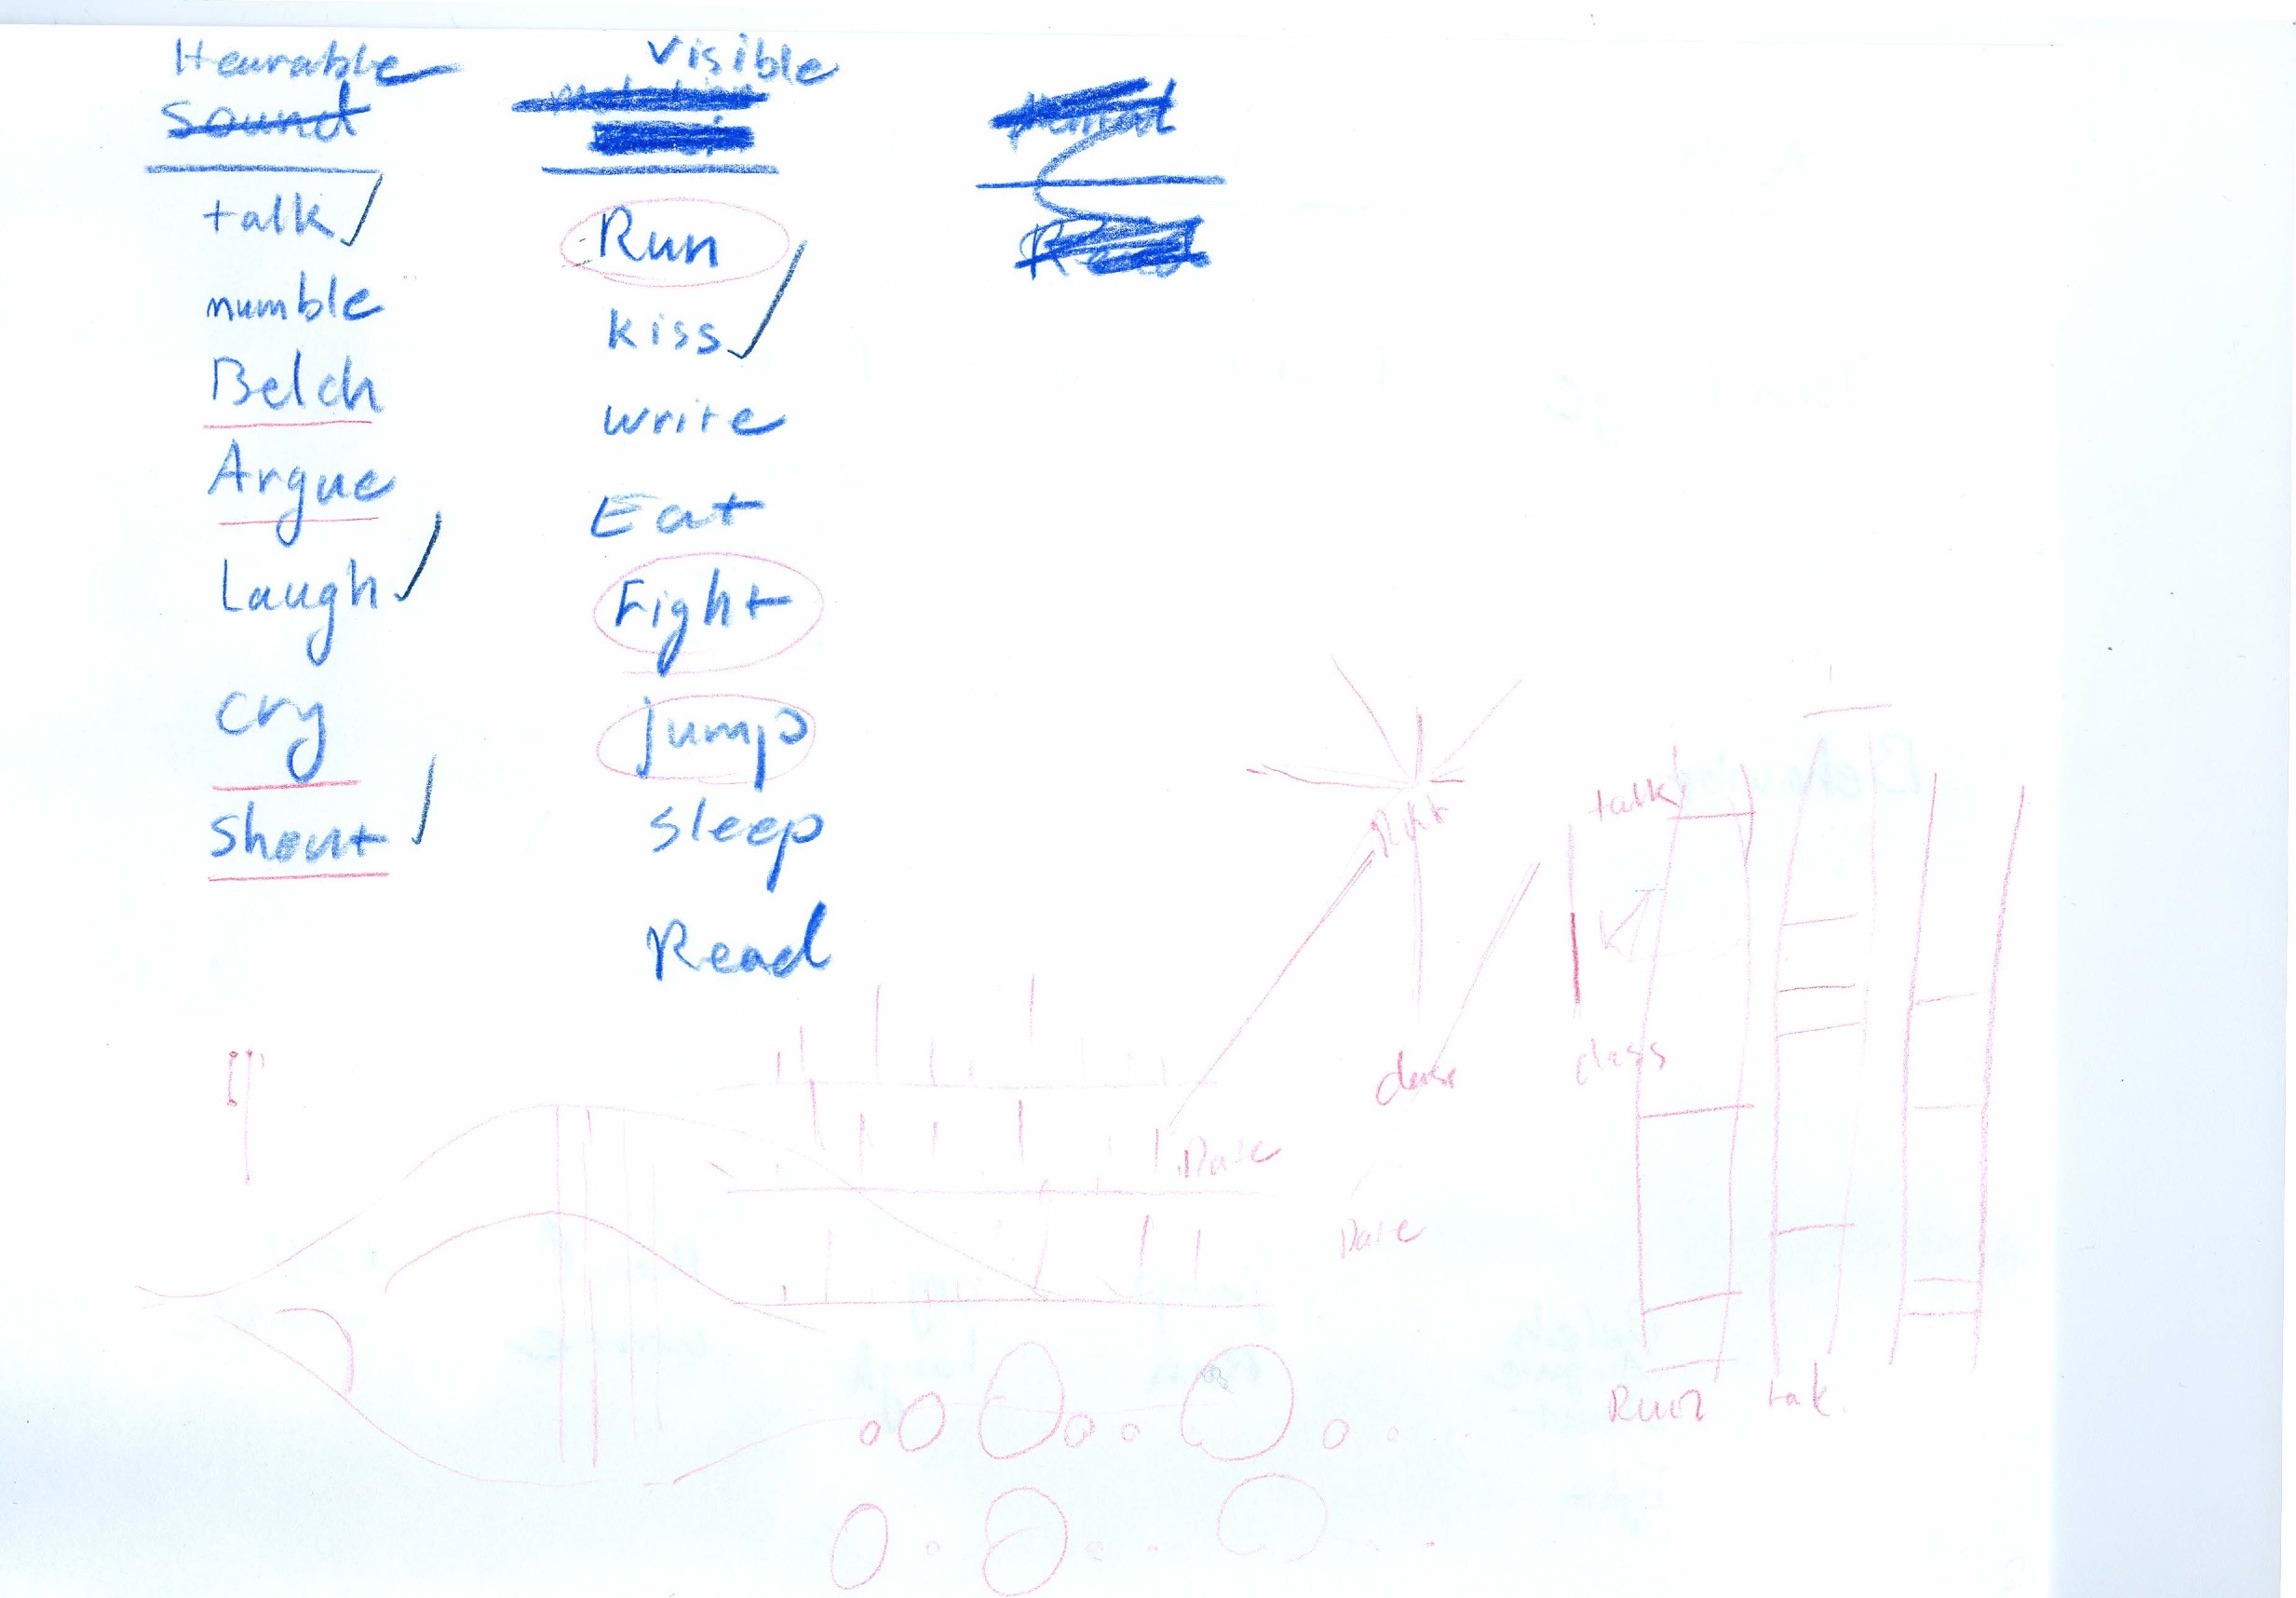 Hearable
Sound
talk
mumble
Belch
Argue
Laugh
cry
shout
visible
Run
kiss
write
Eat
Fight
jump
sleep
Read
talk
class
Run
talk
Date
Date